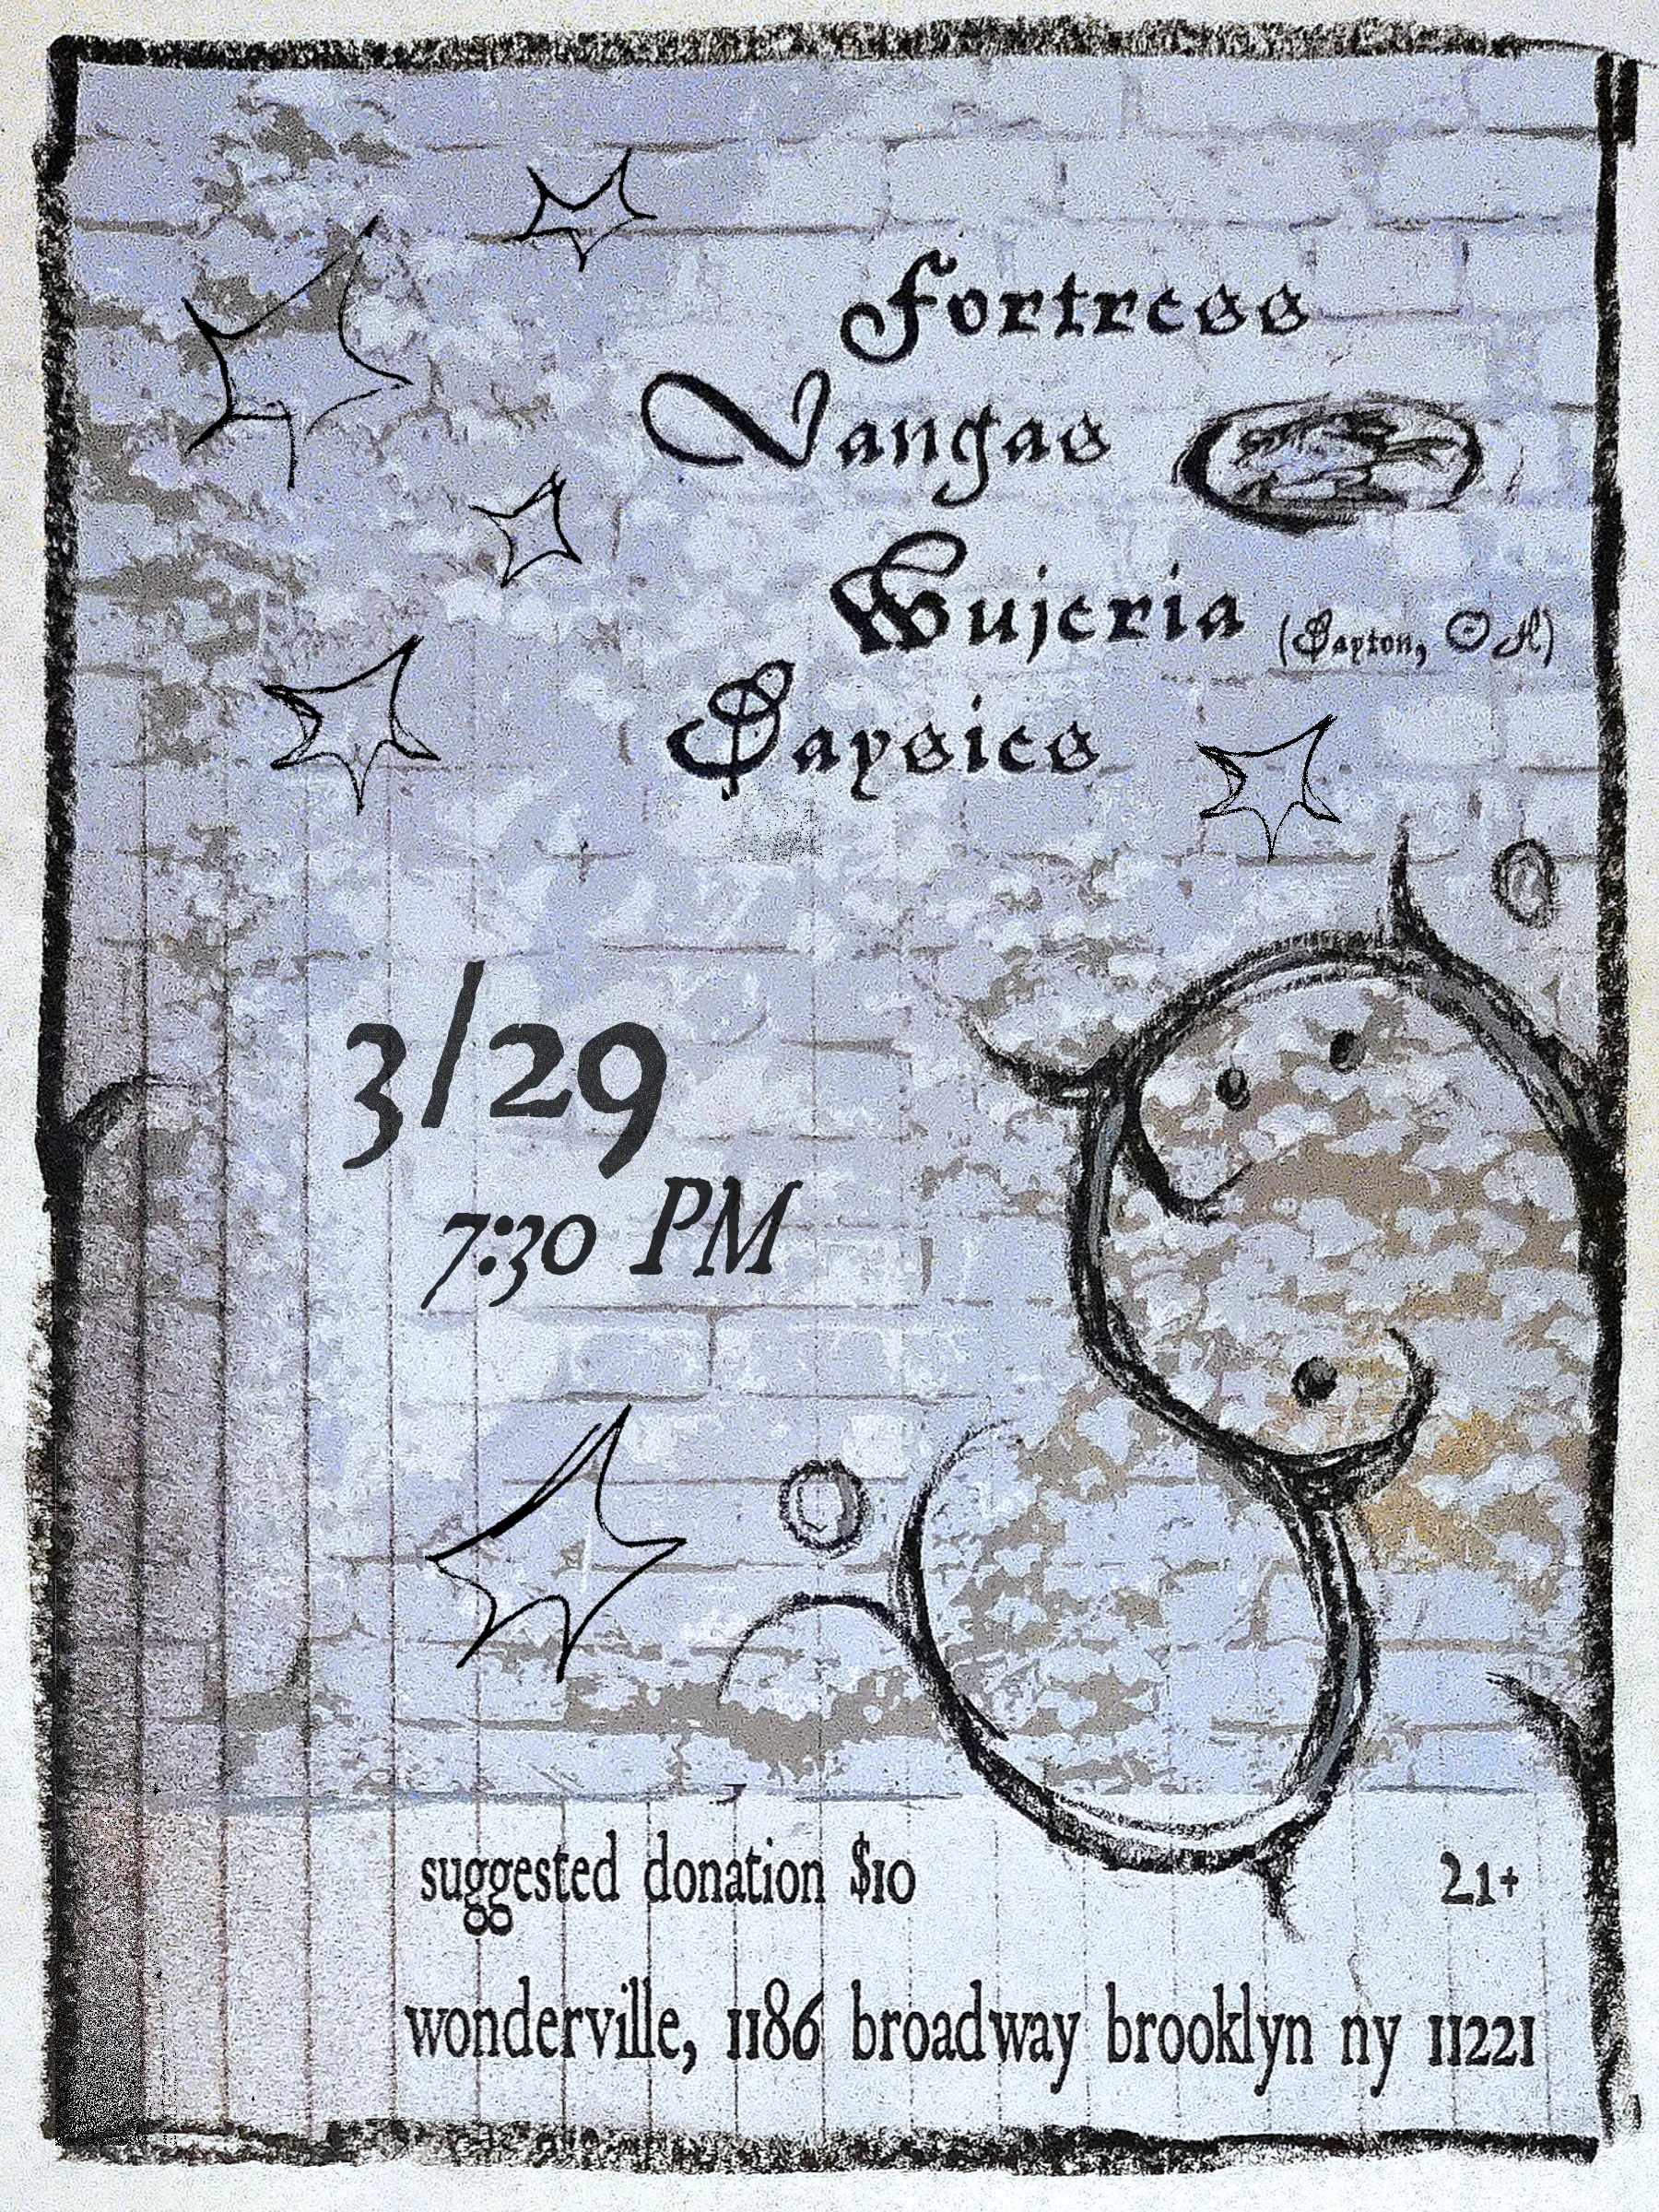 Fortress
Vangas
Wujeria (Dayton, OH)
Daysies
3/29
7:30 PM
suggested donation $10
21+
wonderville, 1186 broadway brooklyn ny 11221